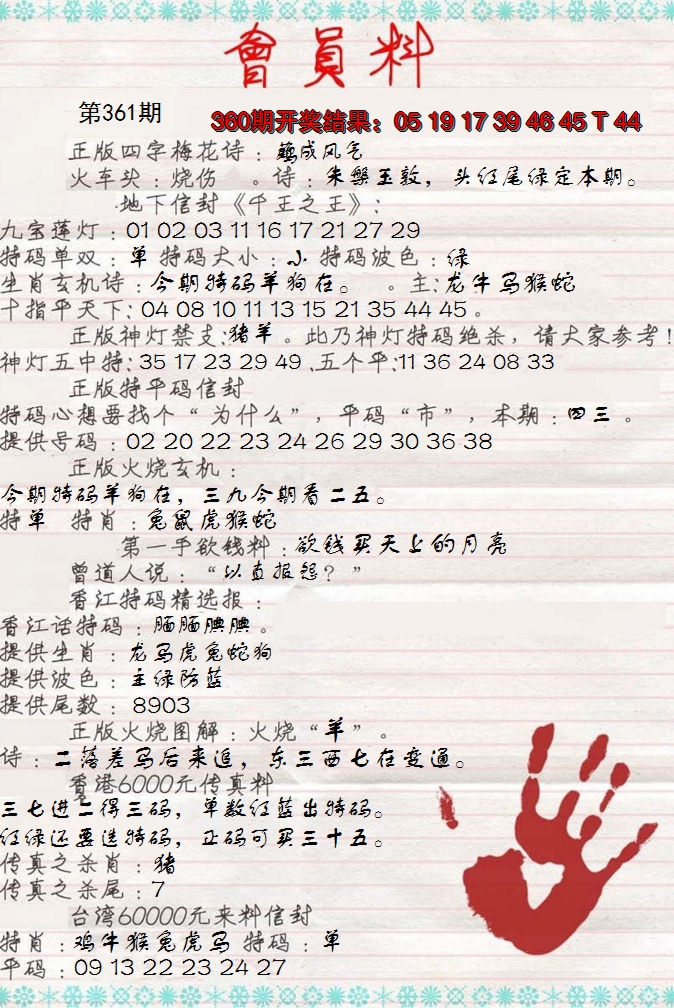 會員料
第361期
360期开奖结果：05 19 17 39 46 45 T 44
正版四字梅花诗：蔚成风气
火车头：烧伤 。诗：朱槃玉敦，头红尾绿定本期。
地下信封《千王之王》：
九宝莲灯：01 02 03 11 16 17 21 27 29
特码单双：单 特码大小：小 特码波色：绿
生肖玄机诗：今期特码羊狗在。 。主：龙牛马猴蛇
十指平天下：04 08 10 11 13 15 21 35 44 45。
正版神灯禁支：猪羊。此乃神灯特码绝杀，请大家参考！
神灯五中特：35 17 23 29 49 .五个平：11 36 24 08 33
正版特平码信封
特码心想要找个“为什么”，平码“市”，本期：四三。
提供号码：02 20 22 23 24 26 29 30 36 38
正版火烧玄机：
今期特码羊狗在，三九今期看二五。
特单 特肖：兔鼠虎猴蛇
第一手欲钱料：欲钱买天上的月亮
曾道人说：“以直报怨？”
香江特码精选报：
香江话特码：腼腼腆腆。
提供生肖：龙马虎兔蛇狗
提供波色：主绿防蓝
提供尾数：8903
正版火烧图解：火烧“羊”。
诗：二落差马后来追，东三西七在变通。
香港6000元传真料
三七进二得三码，单数红蓝出特码。
红绿还要连特码，正码可买三十五。
传真之杀肖：猪
传真之杀尾：7
台湾60000元来料信封
特肖：鸡牛猴兔虎马 特码：单
平码：09 13 22 23 24 27